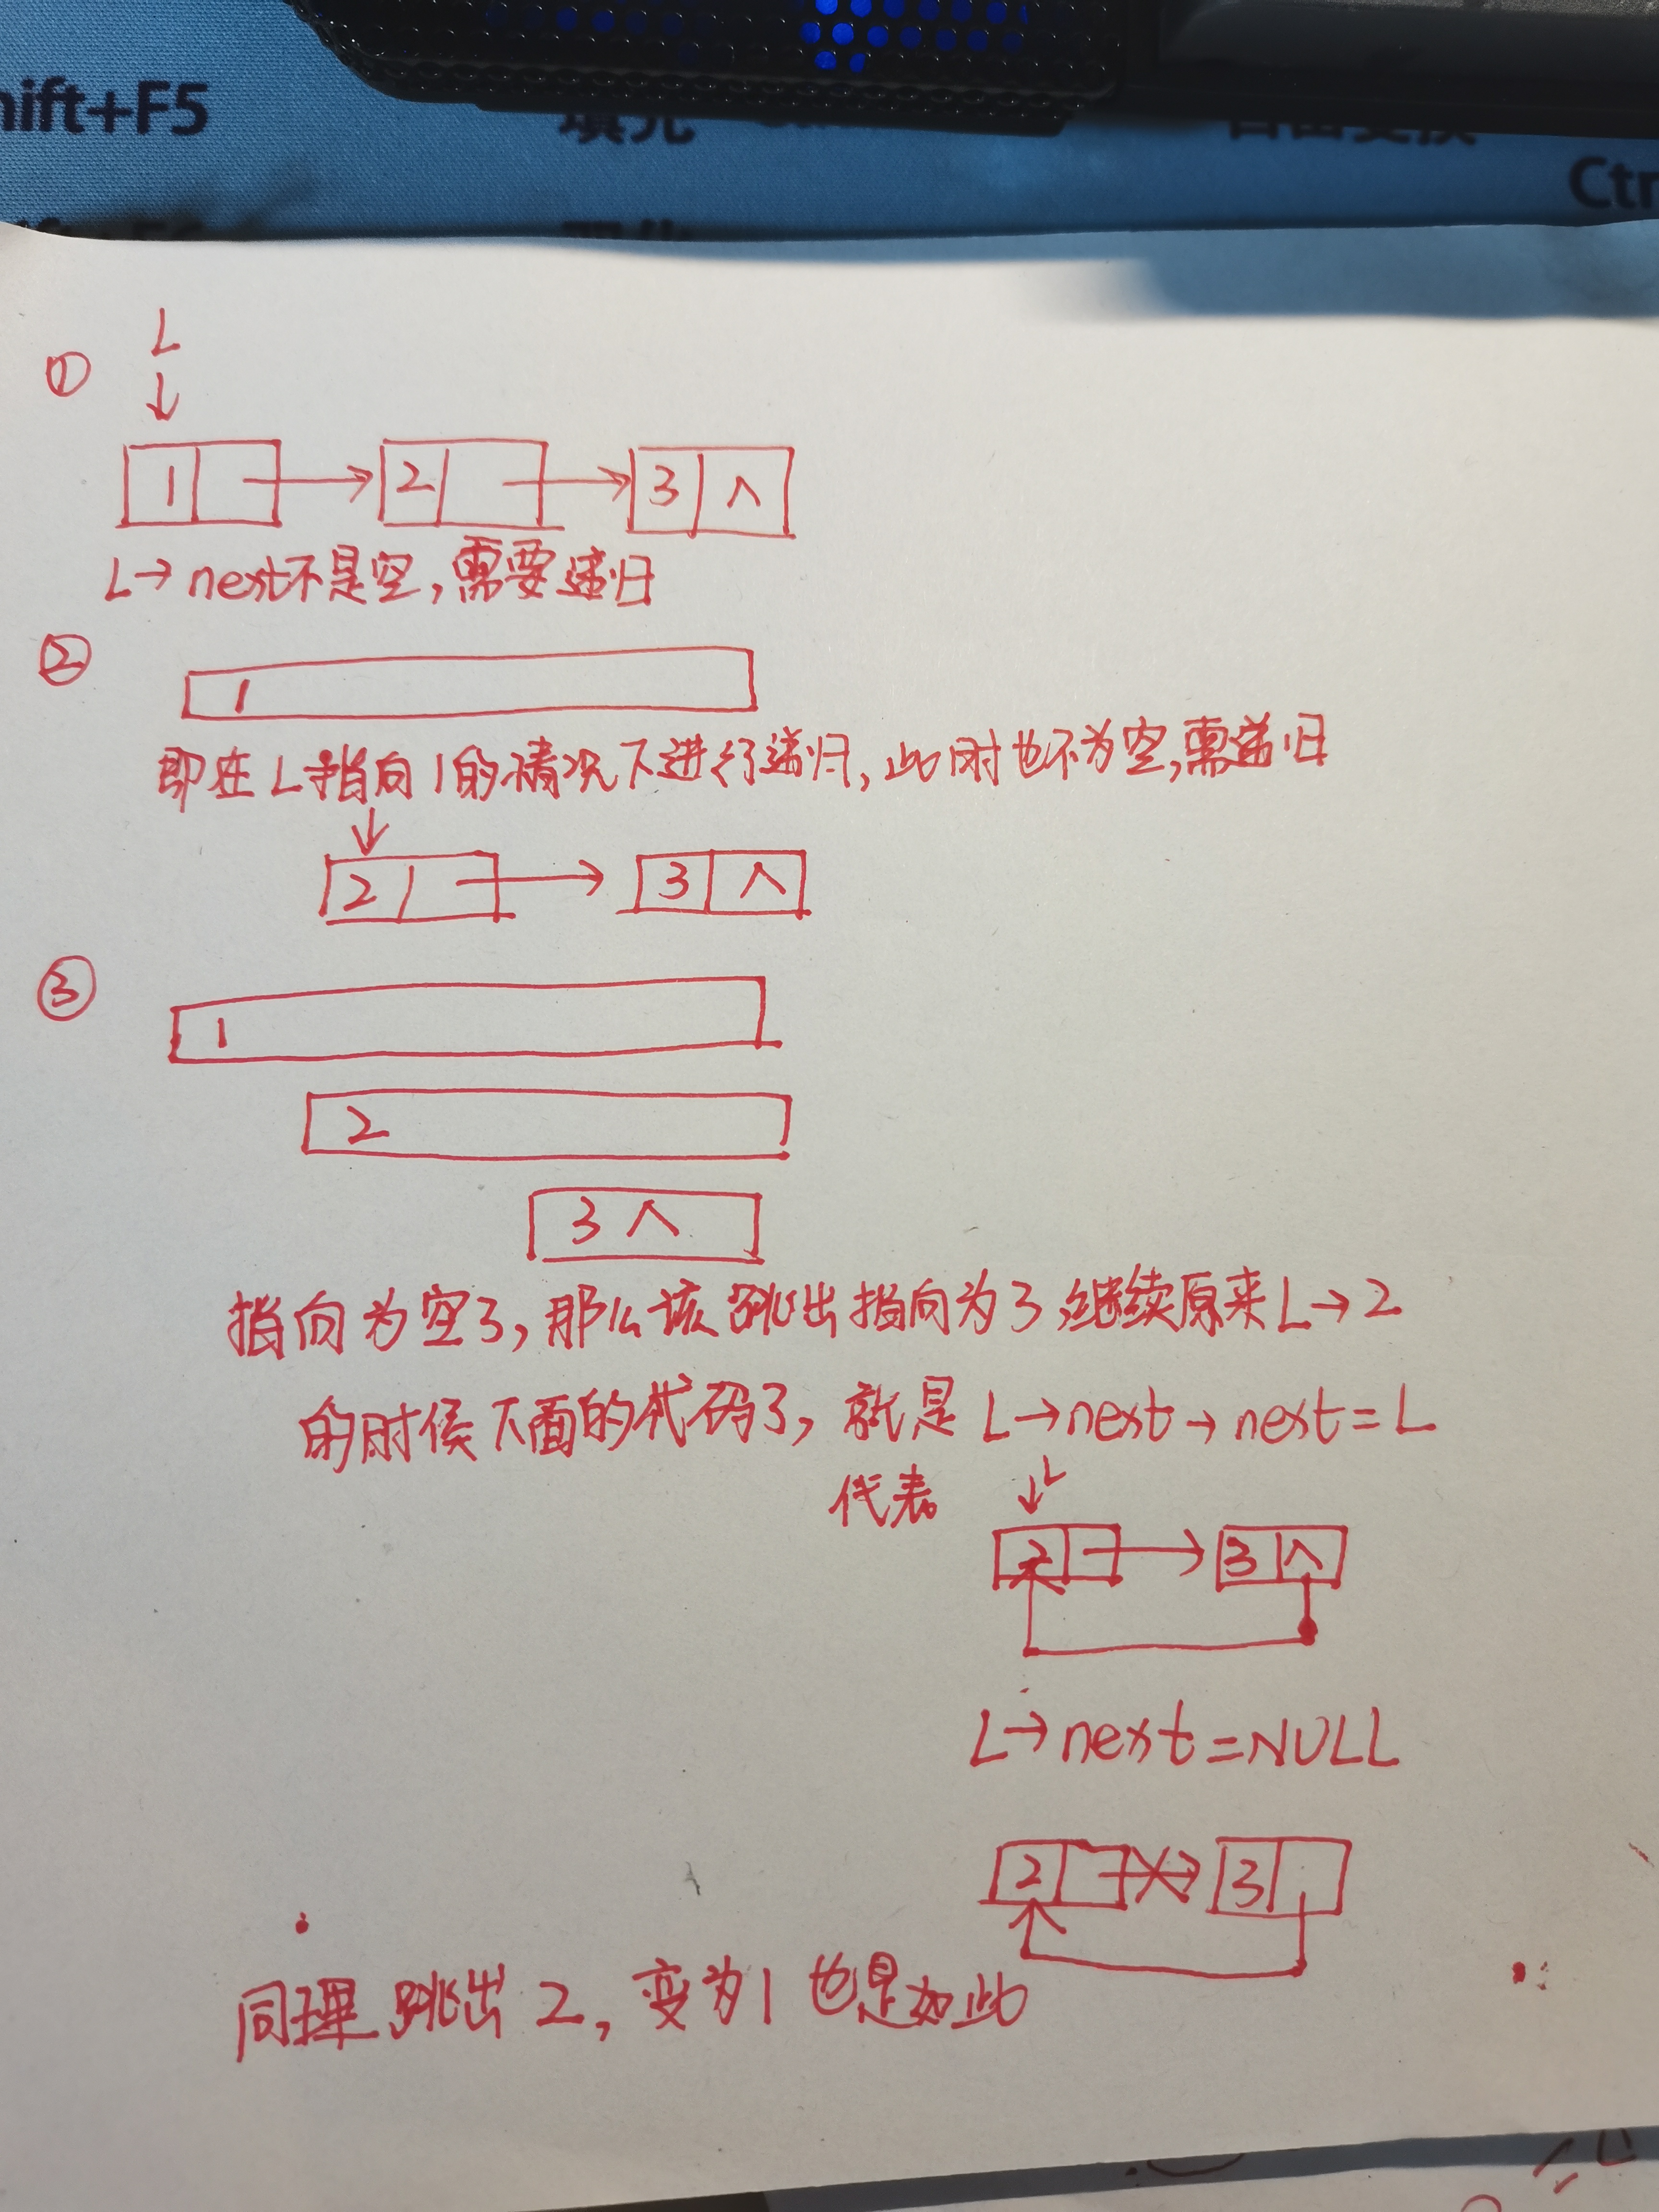 hift+F5
填充
Ctr
L
①
↓
1 → 2 → 3 ∧
L→next不是空,需要递归
②
1
即在L指向1的情况下进行递归,此时也不为空,需递归
↓
2 → 3 ∧
③
1
2
3 ∧
指向为空了,那么该跳出指向为3,继续原来L→2
的时候下面的代码了,就是L→next→next=L
代表
↓L
2 → 3 ∧
L→next=NULL
2 → 3
同理跳出2,变为1也是如此